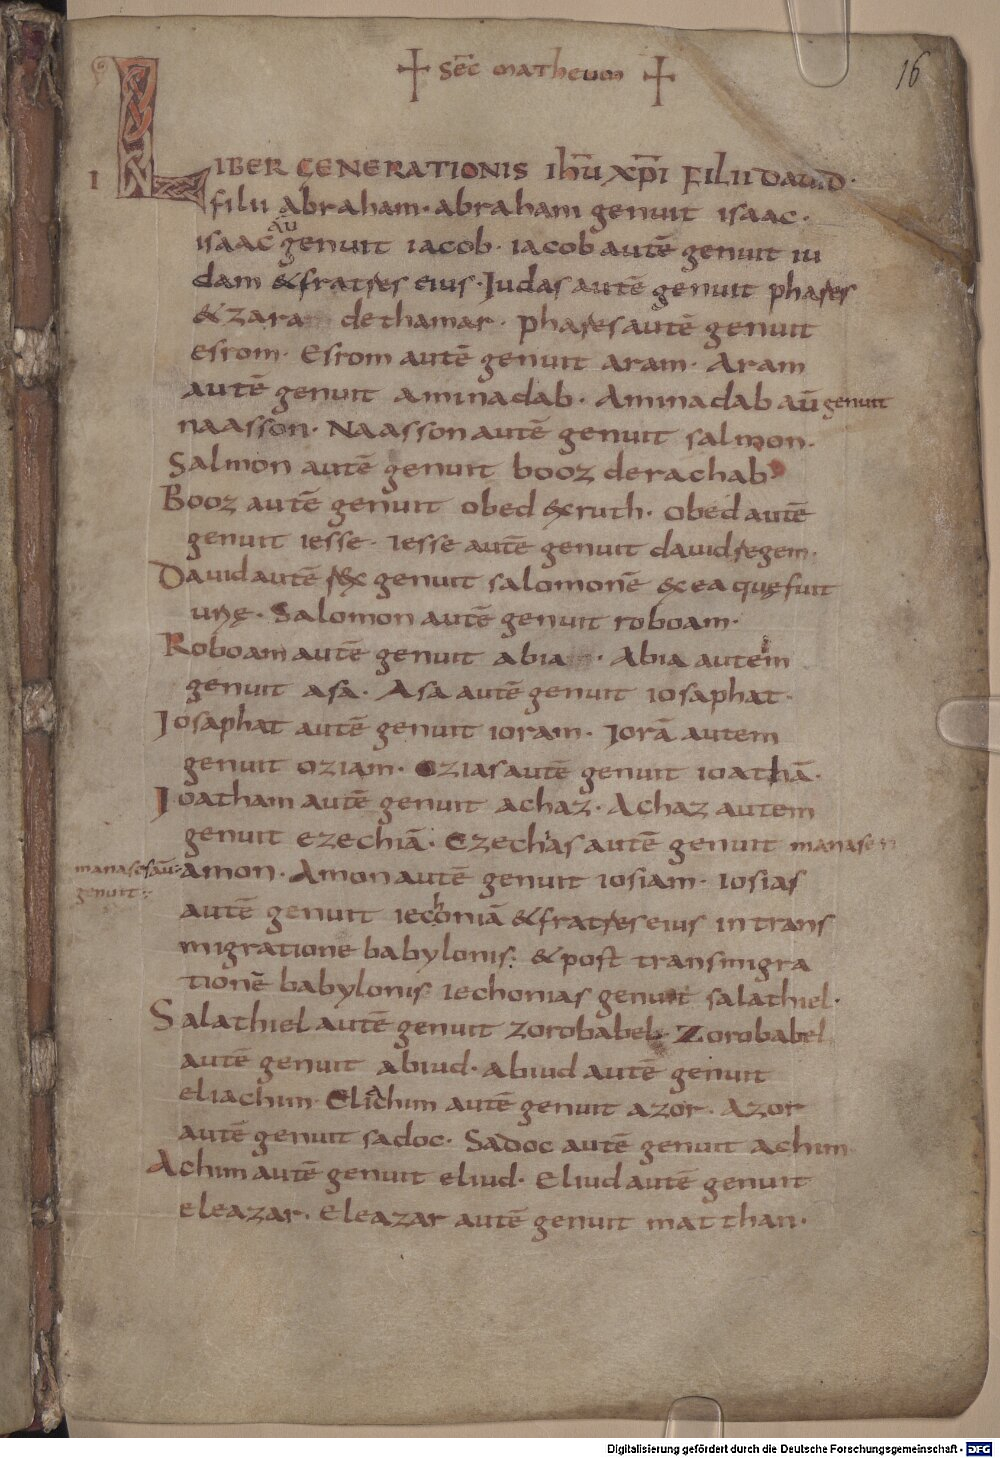 16
+ sēc matheum +
I
LIBER GENERATIONIS ihū xp̄i FILII David·
filii abraham· abraham genuit isaac·
aū
isaac genuit iacob· iacob autē genuit iu
dam & fratres eius· Judas autē genuit phares
& zara de thamar· phares autē genuit
esrom· Esrom autē genuit aram· Aram
autē genuit aminadab· Aminadab aū genuit
naasson· Naasson autē genuit salmon·
Salmon autē genuit booz de rachab
Booz autē genuit obed & ruth· Obed autē
genuit iesse· Iesse autē genuit david regem·
David autē rex genuit salomonē ex ea quę fuit
urię· Salomon autē genuit roboam·
Roboam autē genuit abia· Abia autem
genuit asa· Asa autē genuit iosaphat·
Josaphat autē genuit ioram· Jorā autem
genuit oziam· Ozias autē genuit ioathā·
Joatham autē genuit achaz· Achaz autem
genuit ezechiā· Ezechias autē genuit manasen
manases aū
genuit
amon· Amon autē genuit iosiam· Iosias
autē genuit iechoniā & fratres eius in trans
migratione babylonis: & post transmigra
tionē babylonis iechonias genuit salathiel·
Salathiel autē genuit zorobabel· Zorobabel
autē genuit abiud· abiud autē genuit
eliachim· Eliachim autē genuit azor· Azor
autē genuit sadoc· Sadoc autē genuit achim
Achim autē genuit eliud· Eliud autē genuit
eleazar· Eleazar autē genuit matthan·
Digitalisierung gefördert durch die Deutsche Forschungsgemeinschaft - DFG